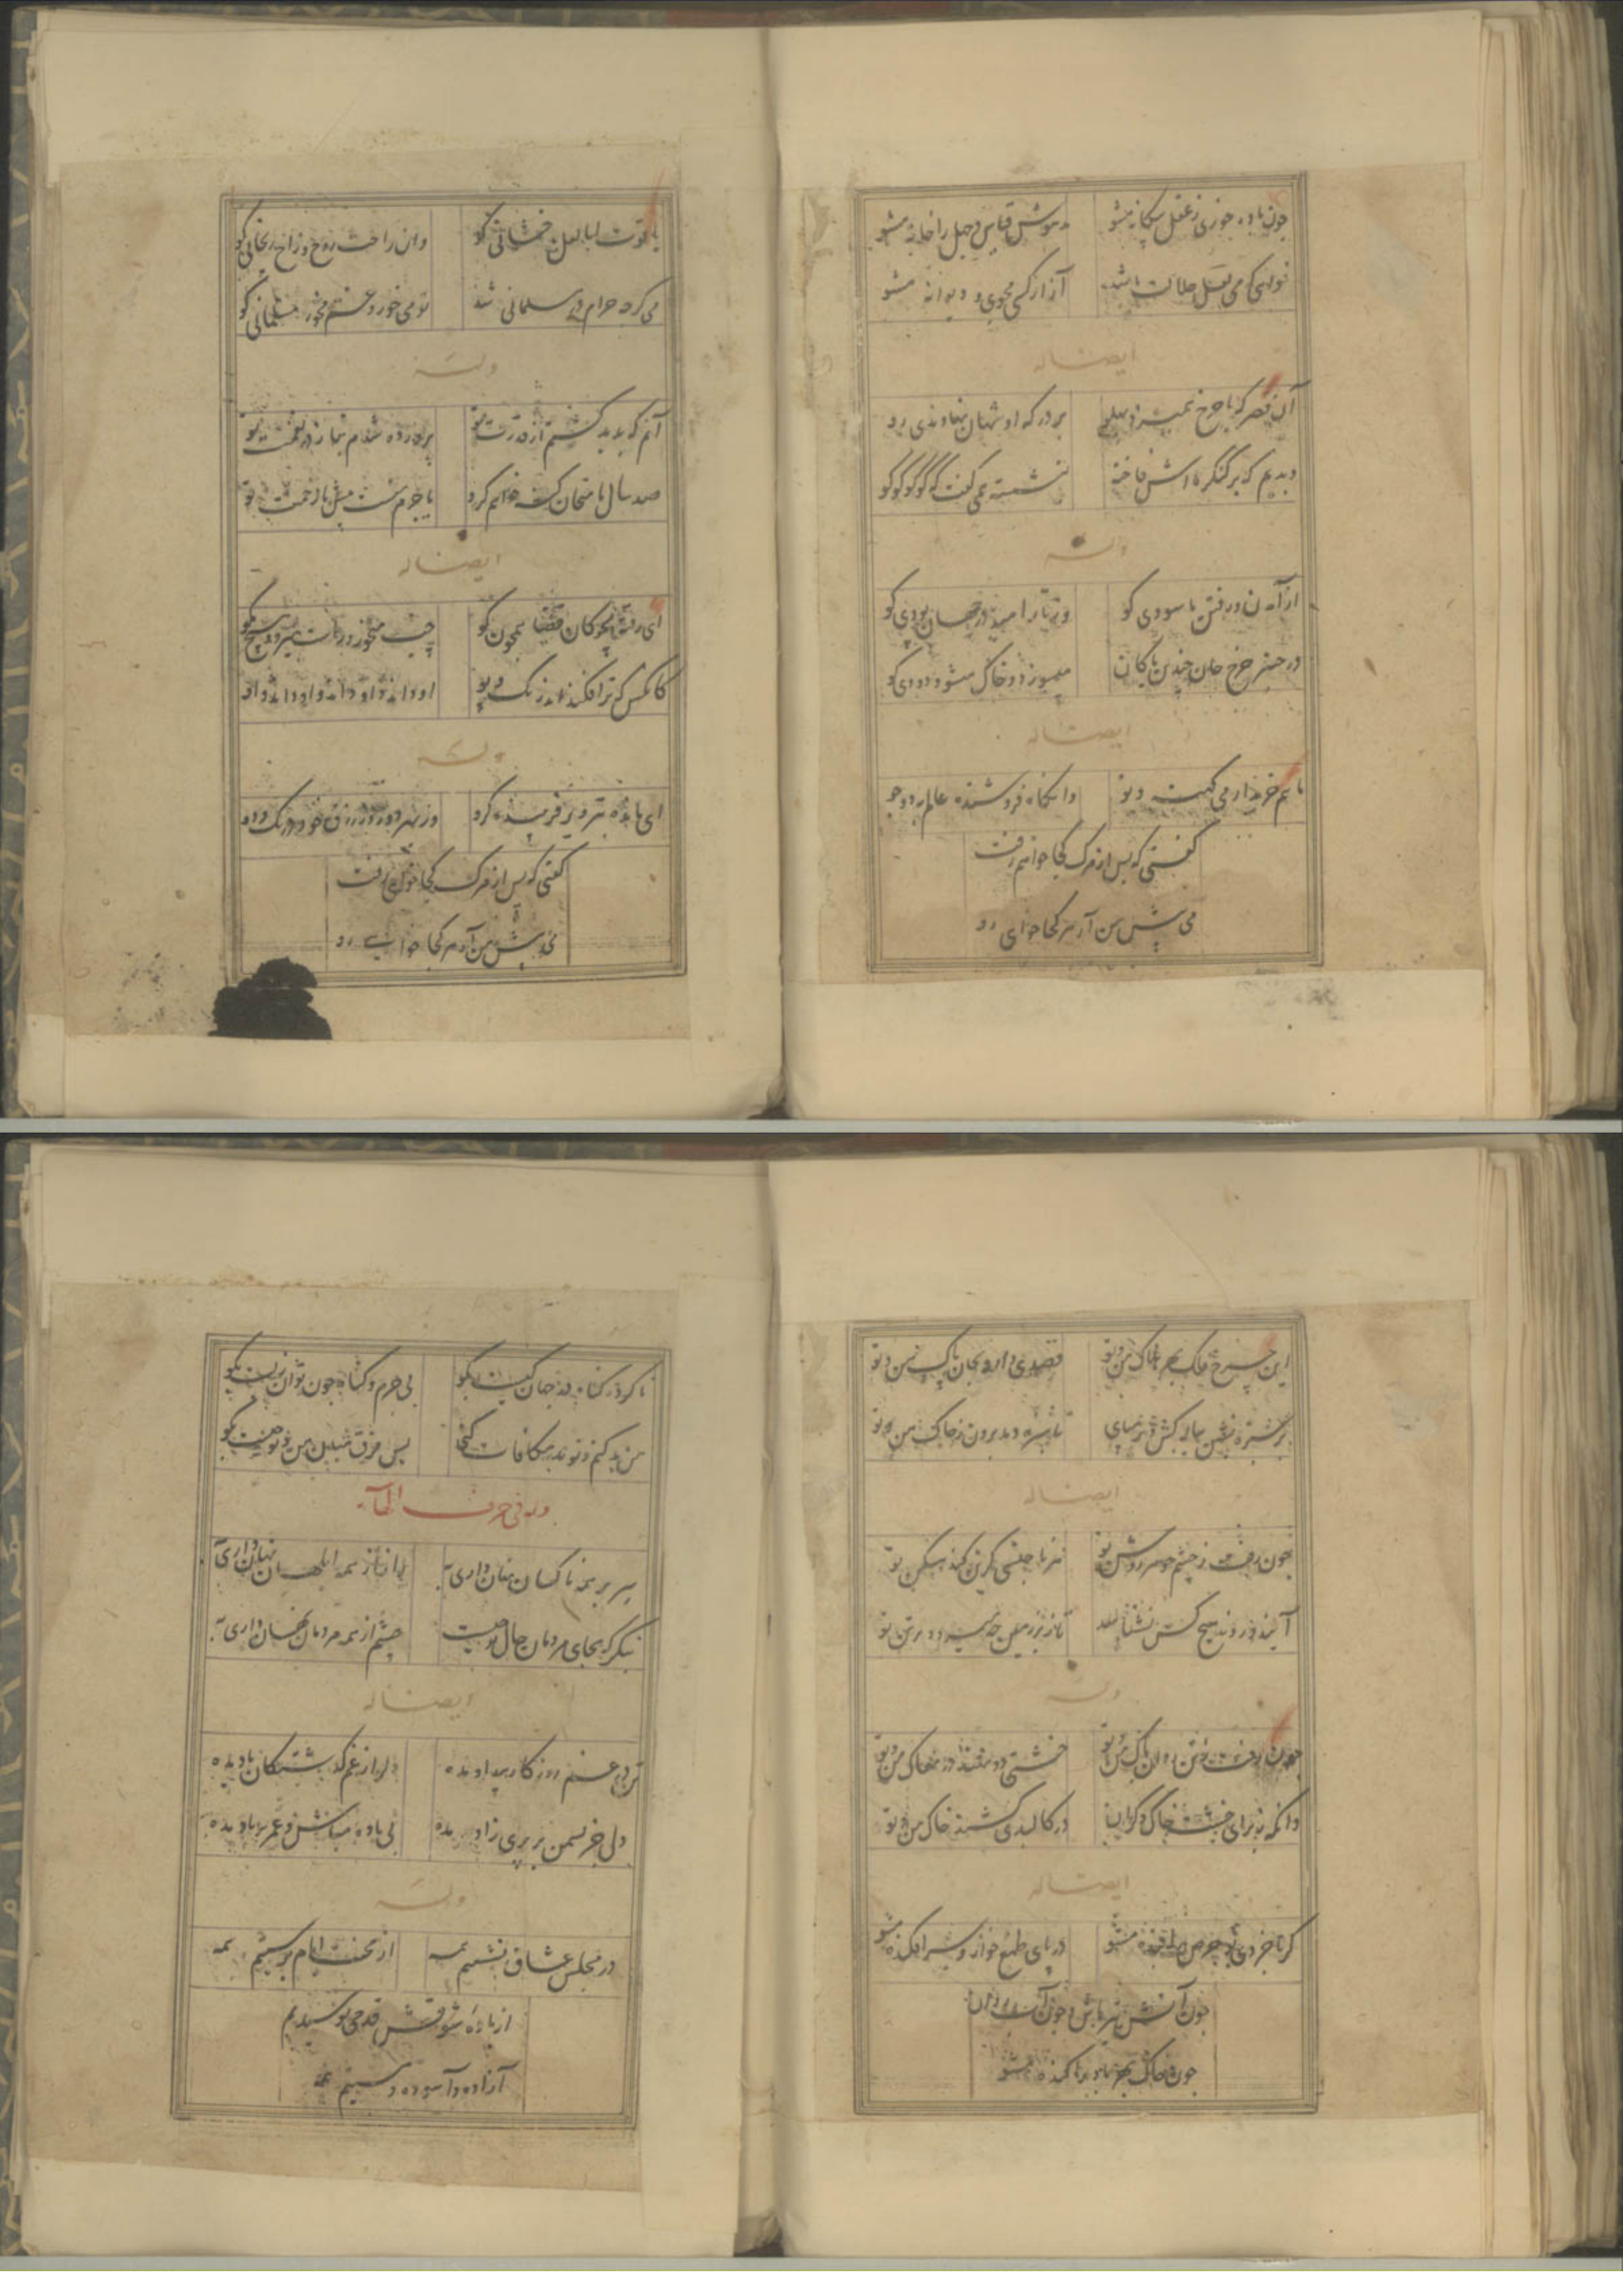 چون باده خوری ز عقل بیگانه مشو
مدهوش مباش و جهل را خانه مشو
خواهی که می لعل حلالت باشد
آزار کسی مجوی و دیوانه مشو
ایضا له
آن قصر که با چرخ همیزد پهلو
بر درگه او شهان نهادندی رو
دیدیم که بر کنگره اش فاخته
بنشسته همی گفت که کو کو کو کو
وله
از آمدن و رفتن ما سودی کو
وز تار امید در جهان پودی کو
در چنبر چرخ جان چندین پاکان
میسوزد و خاک میشود دودی کو
ایضا له
مائیم خریدار می کهنه و نو
وانگاه فروشنده عالم بدو جو
گفتی که پس از مرگ کجا خواهم رفت
می پیش من آر هر کجا خواهی رو
یاقوت لبا لعل بدخشانی کو
وان راحت روح و راح ریحانی کو
می گرچه حرام در مسلمانی شد
تو می خور و غم مخور مسلمانی کو
وله
آنم که پدید گشتم از قدرت تو
پرورده شدم بناز در نعمت تو
صد سال بامتحان گنه خواهم کرد
یا جرم منست بیش یا رحمت تو
ایضا له
ای رفته بچوگان قضا همچون گو
چپ میخور و راست میرو و هیچ مگو
کانکس که ترا افکند اندر تک و پو
او داند و او داند و او داند و او
وله
ای مانده بتزویر فریبنده گرو
وز بهر دو روزه رزق خود در تک و دو
گفتی که پس از مرگ کجا خواهی رفت
می پیش من آر هر کجا خواهی رو
این چرخ فلک بهر هلاک من و تو
قصدی دارد بجان پاک من و تو
بر سبزه نشین پیاله کش دیر نپای
تا سبزه دمد برون ز خاک من و تو
ایضا له
چون رفت ز جسم جوهر روشن تو
آیند و روند هیچ کس نشناسد
تا زیر زمین چه میرود بر تن تو
وله
چون رفت ز تن روان پاک من و تو
خشتی دو نهند در مغاک من و تو
وانگه ز برای خشت خاک دگران
در کالبدی کشند خاک من و تو
ایضا له
گر با خردی تو حرص را بنده مشو
در پای طمع خوار و سرافکنده مشو
چون آتش تیز باش و چون آب روان
چون خاک بهر باد پراکنده مشو
ناکرده گناه در جهان کیست بگو
بی جرم و گناه چون توان زیست بگو
من بد کنم و تو بد مکافات کنی
پس فرق میان من و تو چیست بگو
وله فی حرف الهآء
سر بر همه ناکسان نهان داری به
راز از همه ابلهان نهان داری به
بنگر که بجای مردمان حال تو چیست
چشم از همه مردمان نهان داری به
ایضا له
تن در غم روزگار بیداد مده
دل را ز غم گذشتگان یاد مده
دل جز بسمن بر پری زاد مده
بی باده مباش و عمر بر باد مده
وله
در مجلس عشاق نشستیم همه
از محنت ایام برستیم همه
از باده شوقش قدحی نوشیدیم
آزاده و آسوده و مستیم همه